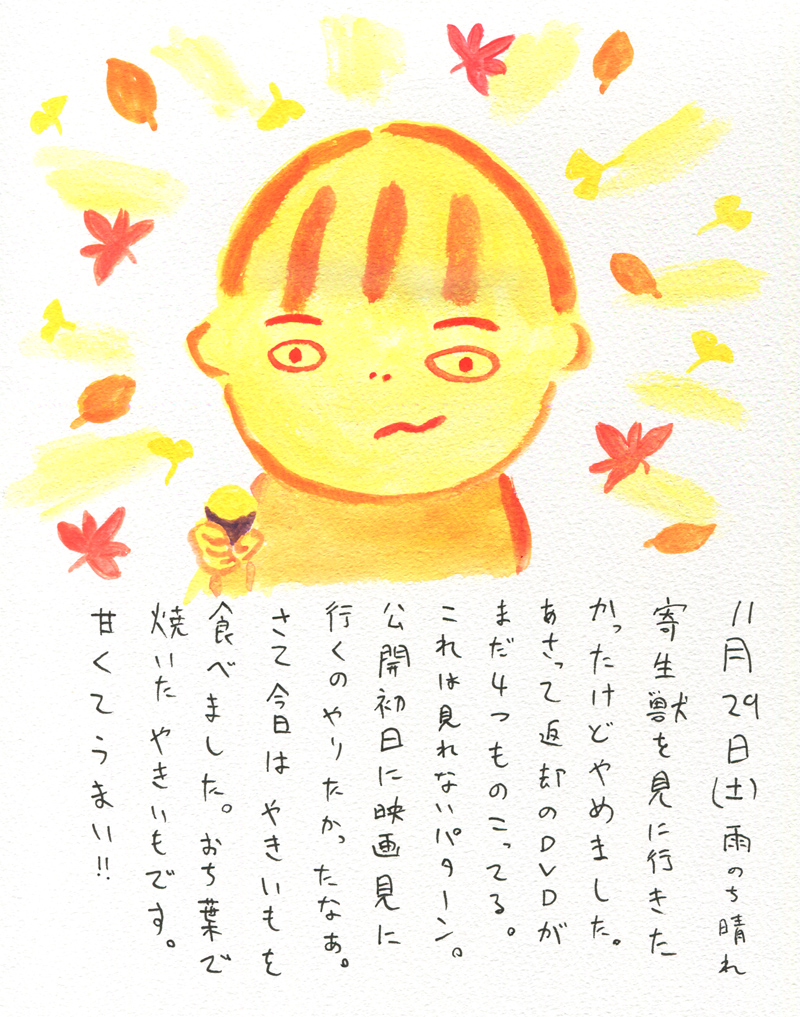 11月29日(土)雨のち晴れ
寄生獣を見に行きた
かったけどやめました。
あさって返却のDVDが
まだ4つものこってる。
これは見れないパターン。
公開初日に映画見に
行くのやりたかったなぁ。
さて今日はやきいもを
食べました。おち葉で
焼いたやきいもです。
甘くてうまい!!